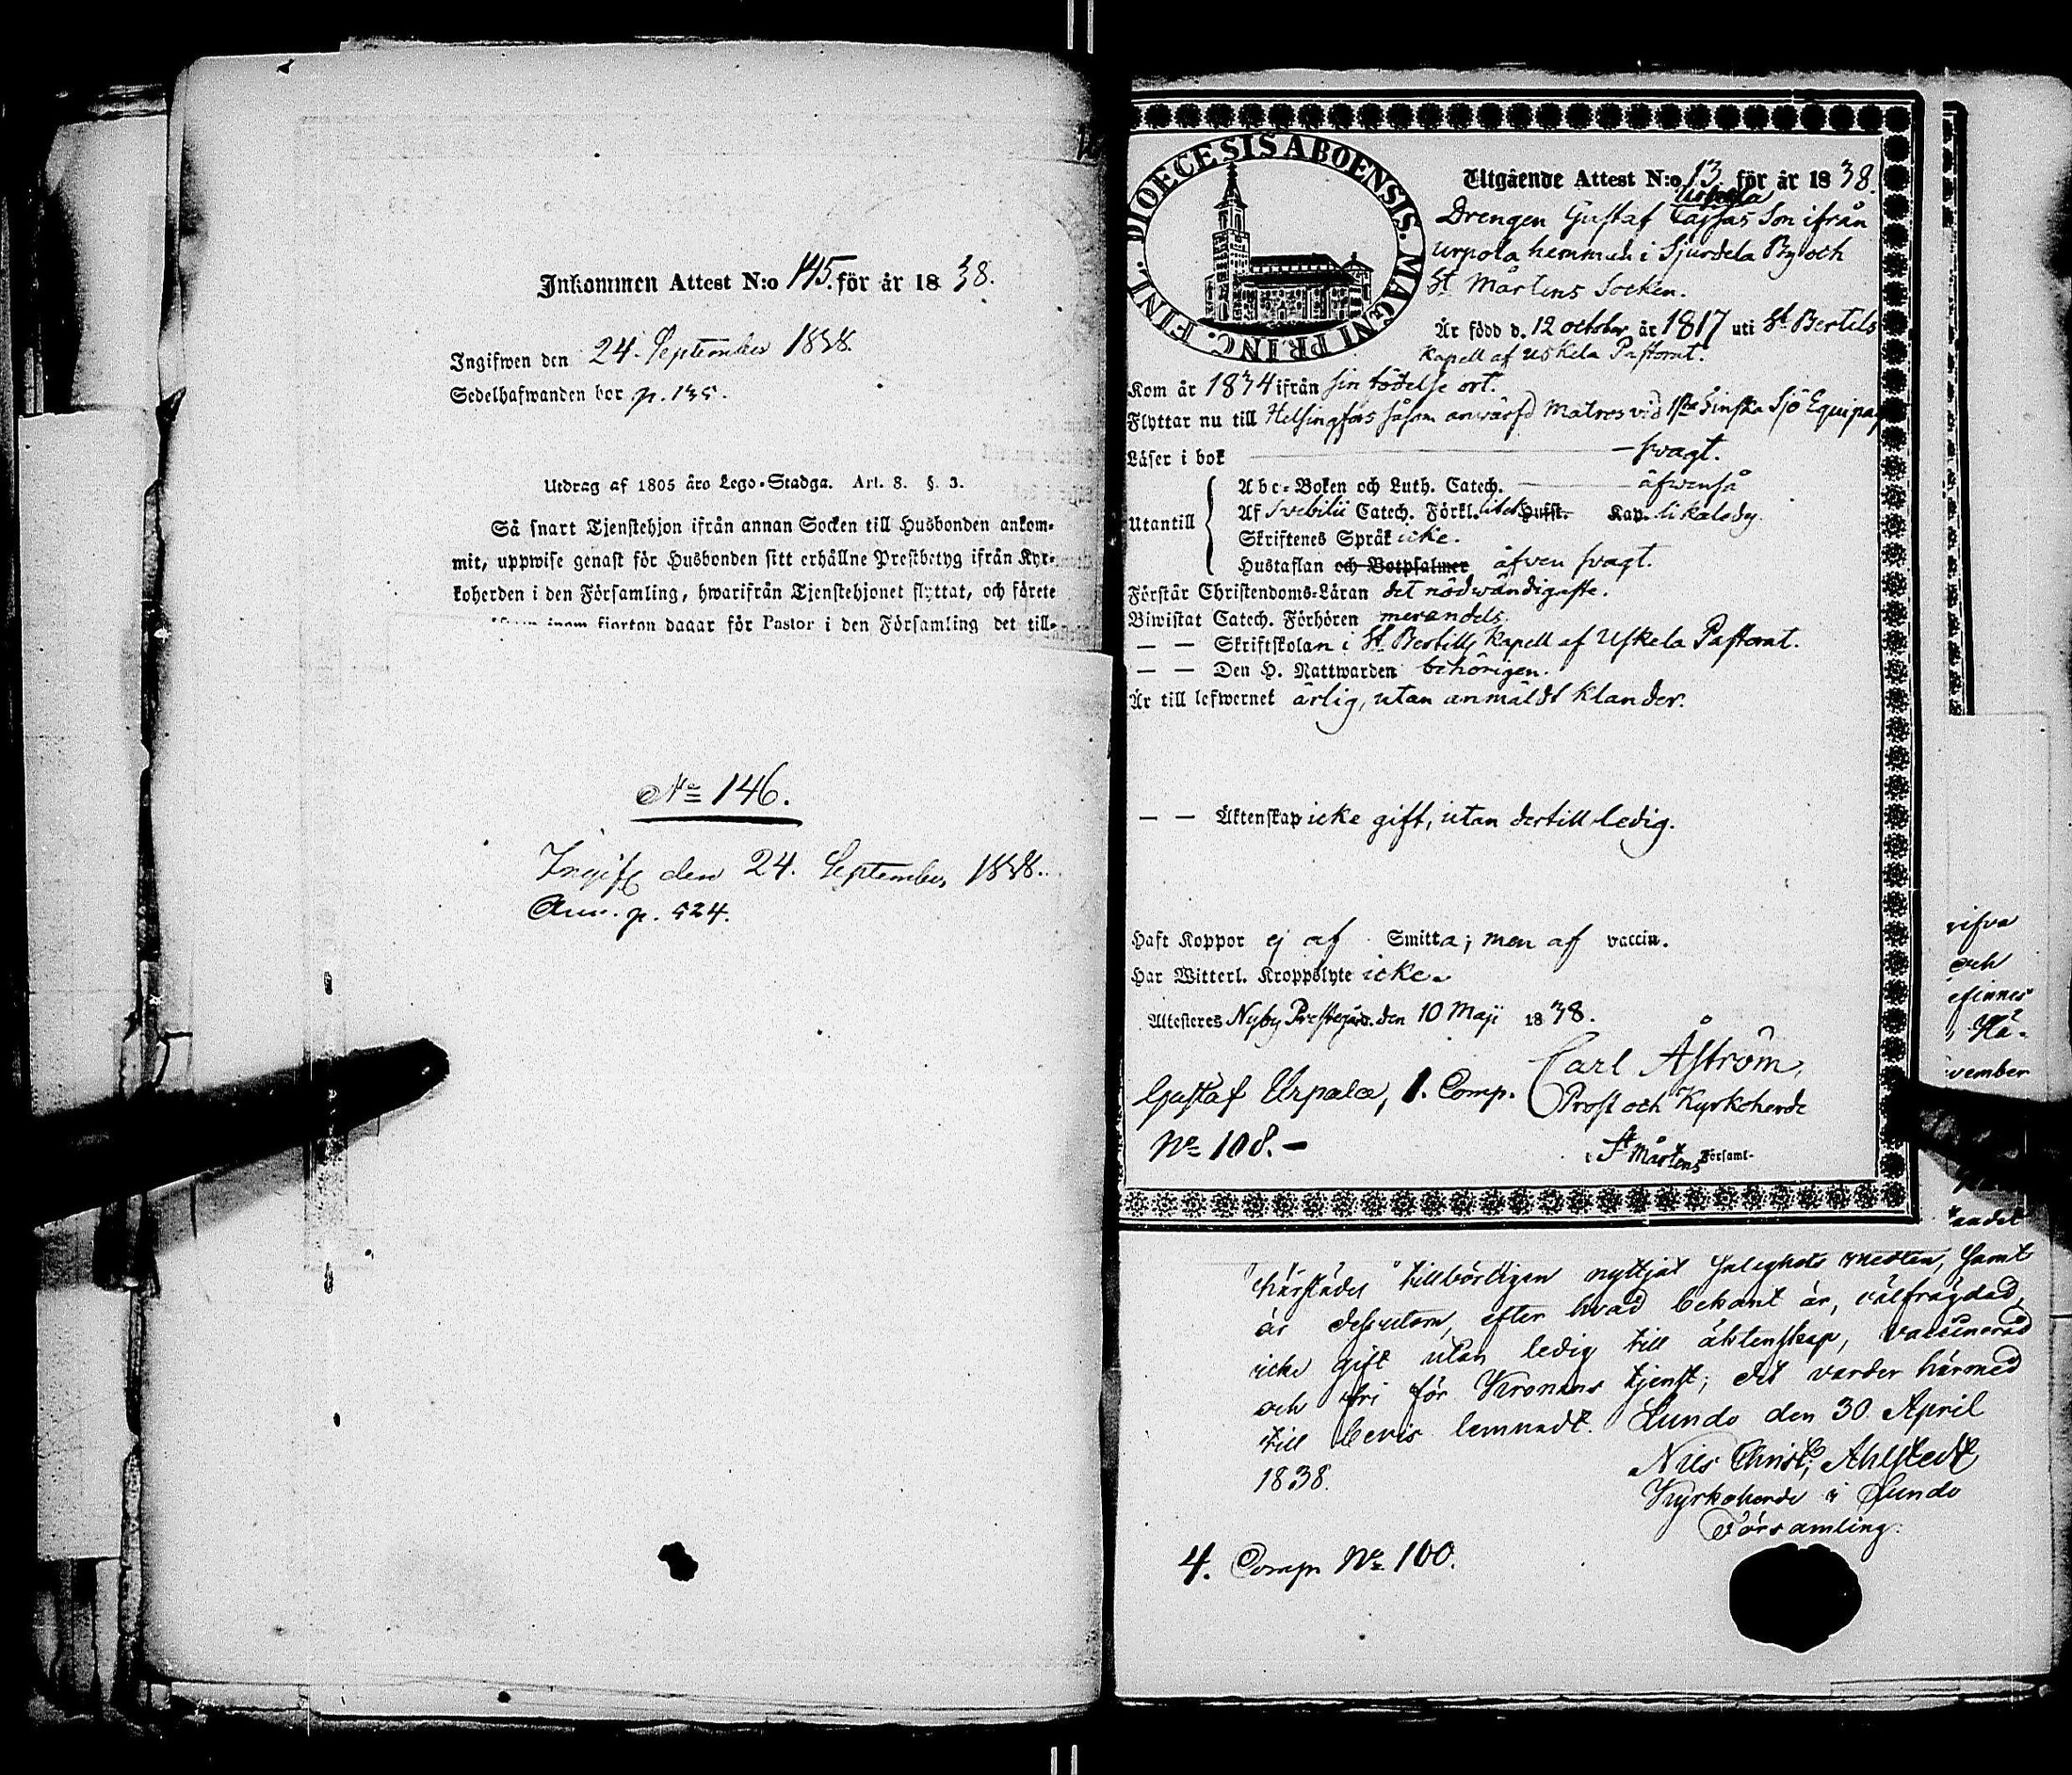 Inkommen Attest N:o 145. för år 1838.
Ingifwen den 24. September 1838.
Sedelhafwanden bor p. 135.
Utdrag af 1805 års Lego-Stadga. Art. 8. §. 3.
Så snart Tjenstehjon ifrån annan Socken till Husbonden ankom-
mit, uppwise genast för Husbonden sitt erhållne Prestbetyg ifrån Kyr-
koherden i den Församling, hwarifrån Tjenstehjonet flyttat, och förete
inom fjorton dagar för Pastor i den Församling det till-
No 146.
Ingif. den 24. September 1838.
Anv. p. 524.
DIOECESIS ABOENSIS. MAGNI PRINC. FINL.
Utgående Attest N:o 13 för år 1838.
Urpola
Drengen Gustaf Son ifrån
Urpola hemman i Sjurdela By och
St Mårtens Socken.
Är född d. 12 october år 1817 uti St Bertils
Kapell af Uskela Pastorat.
Kom år 1834 ifrån sin födelse ort.
Flyttar nu till Helsingfors såsom anvärfd Matros vid 1sta Finska Sjö Equipag
Läser i bok — svagt.
Utantill
Abc-Boken och Luth. Catech. — äfwenså
Af Svebilii Catech. Förkl. Hufst. Kap. likaledes
Skriftenes Språk icke.
Hustaflan och Botpsalmer äfven svagt.
Förstår Christendoms-Läran det nödwändigaste.
Biwistat Catech. Förhören merendels.
— — Skriftskolan i St Bertills Kapell af Uskela Pastorat.
— — Den H. Nattwarden behörigen.
Är till lefwernet ärlig, utan anmäldt klander.
— — Äktenskap icke gift, utan dertill ledig.
Haft Koppor ej af Smitta; men af vaccin.
Har Witterl. Kroppslyte icke.
Attesteres Nyby Prestegård den 10 Maji 1838.
Carl Åström,
Prost och Kyrkoherde
i St Mårtens Församl-
Gustaf Urpala, 1. Comp.
No 108. —
härstädes tillbörligen nyttjat Salighets medlen, samt
är dessutom, efter hvad bekant är, välfrägdad,
icke gift utan ledig till äktenskap, vaccinerad
och fri för Kronans tjenst; det varder härmed
till bevis lemnadt. Lundo den 30 April
1838.
Nils Christ. Ahlstedt
Kyrkoherde i Lundo
Församling.
4. Comp No 100.
rifva
och
efinnes
Hä-
vember
andet